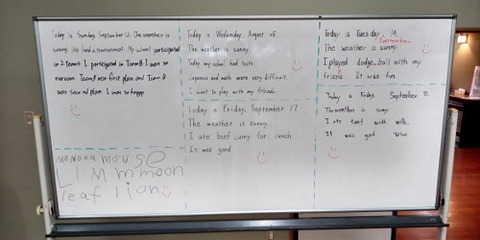 Today is Sunday, September 12. The weather is
sunny. We had a tournament. My school participated
in 2 teams. I participated in Team B. I was so
nervous. Team A won first place and Team B
won second place. I was so happy
momoka mouse
L l M m moon
leaf lion
Today is Wednesday, August
The weather is sunny.
Today my school had tests
Japanese and math were very difficult.
I want to play with my friends
Today is Friday, September 17
The weather is sunny.
I ate beef curry for lunch.
It was good.
Today is Tuesday, 14
September
The weather is sunny.
I played dodge ball with my
friends. It was fun
Today is Friday, September
The weather is sunny.
I ate toast with milk.
It was good.